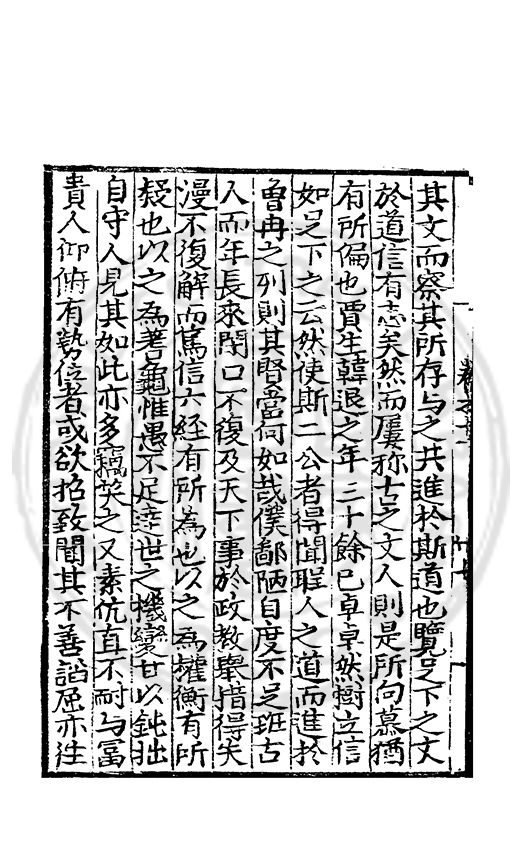 其文而察其所存与之共進於斯道也覽足下之文
於道信有志矣然而屢称古之文人則是所向慕猶
有所偏也賈生韓退之年三十餘已卓卓然樹立信
如足下之云然使斯二公者得聞聖人之道而進於
曾冉之列則其賢當何如哉僕鄙陋自度不足班古
人而年長來閉口不復及天下事於政教舉措得失
漫不復解而篤信六經有所為也以之為權衡有所
疑也以之為蓍龜惟愚不足達世之機變甘以鈍拙
自守人見其如此亦多竊笑之又素伉直不耐与富
貴人仰俯有勢位者或欲招致聞其不善諂屈亦往